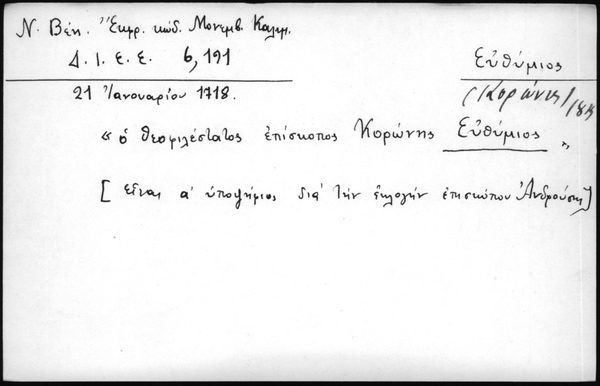 Ν. Βέη. Ἔκφρ. κώδ. Μονεμβ. Καλαμ.
Δ. Ι. Ε. Ε. 6, 191
Εὐθύμιος
(Κορώνης)
21 Ἰανουαρίου 1718.
« ὁ θεοφιλέστατος ἐπίσκοπος Κορώνης Εὐθύμιος »
[ εἶναι α' ὑποψήφιος διά τήν ἐκλογήν ἐπισκόπου Ἀνδρούσης]